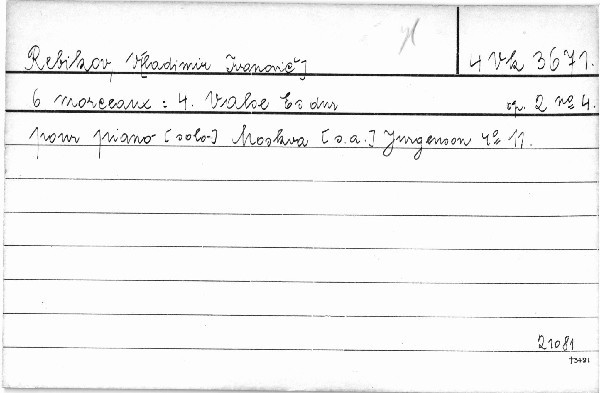 Rebikov, V[ladimir Ivanovič] 4 Vk 3671.
6 morceaux : 4. Valse Es dur op. 2 no 4.
pour piano [solo] Moskva [s.a.] Jurgenson 4° 11.
21081
T3481